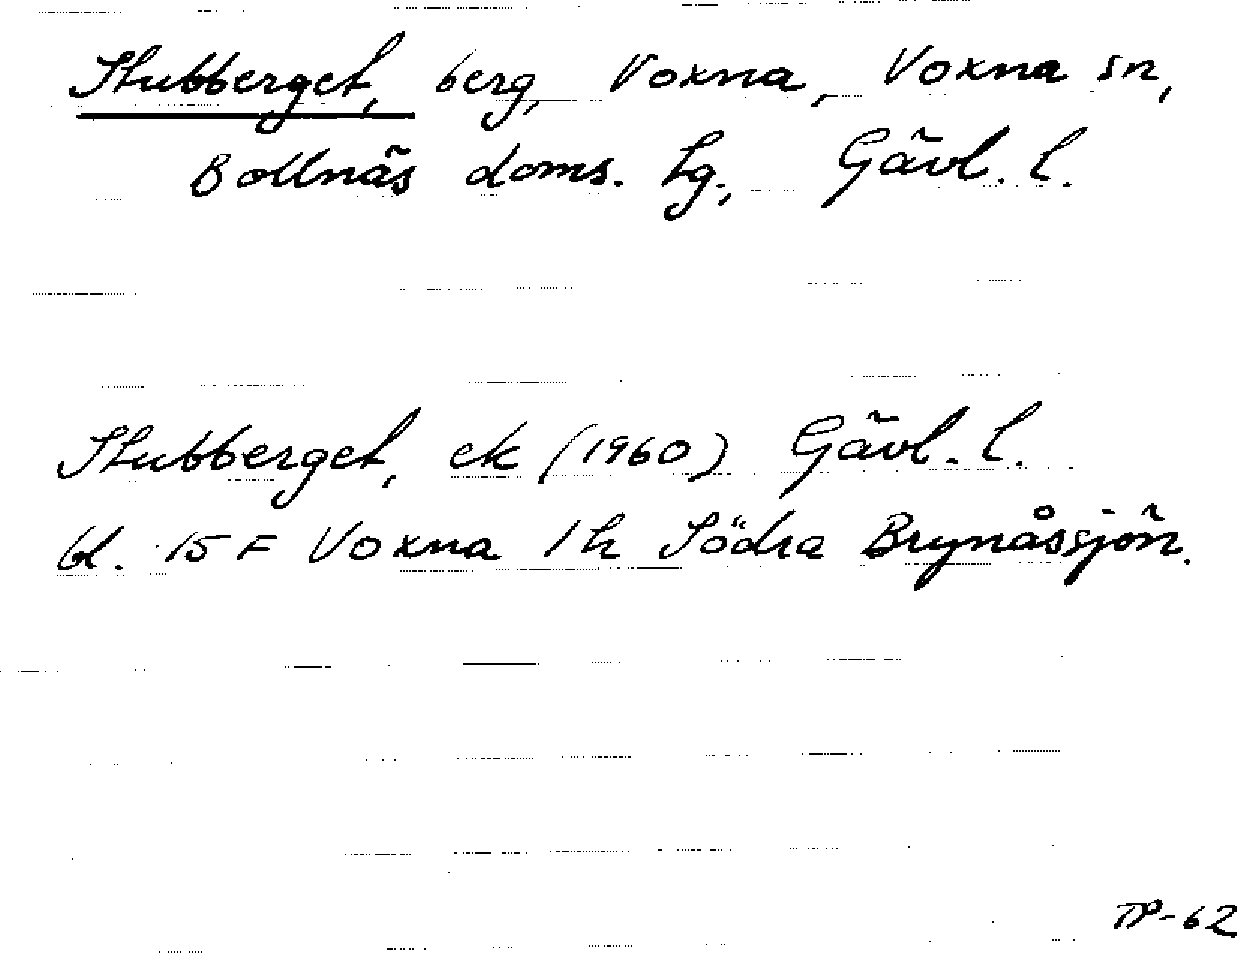 Stubberget, berg, Voxna, Voxna sn,
Bollnäs doms. lg., Gävl. l.
Stubberget, ek (1960) Gävl. l.
bl. 15 F Voxna 1 h Södra Brynåssjön.
TP-62